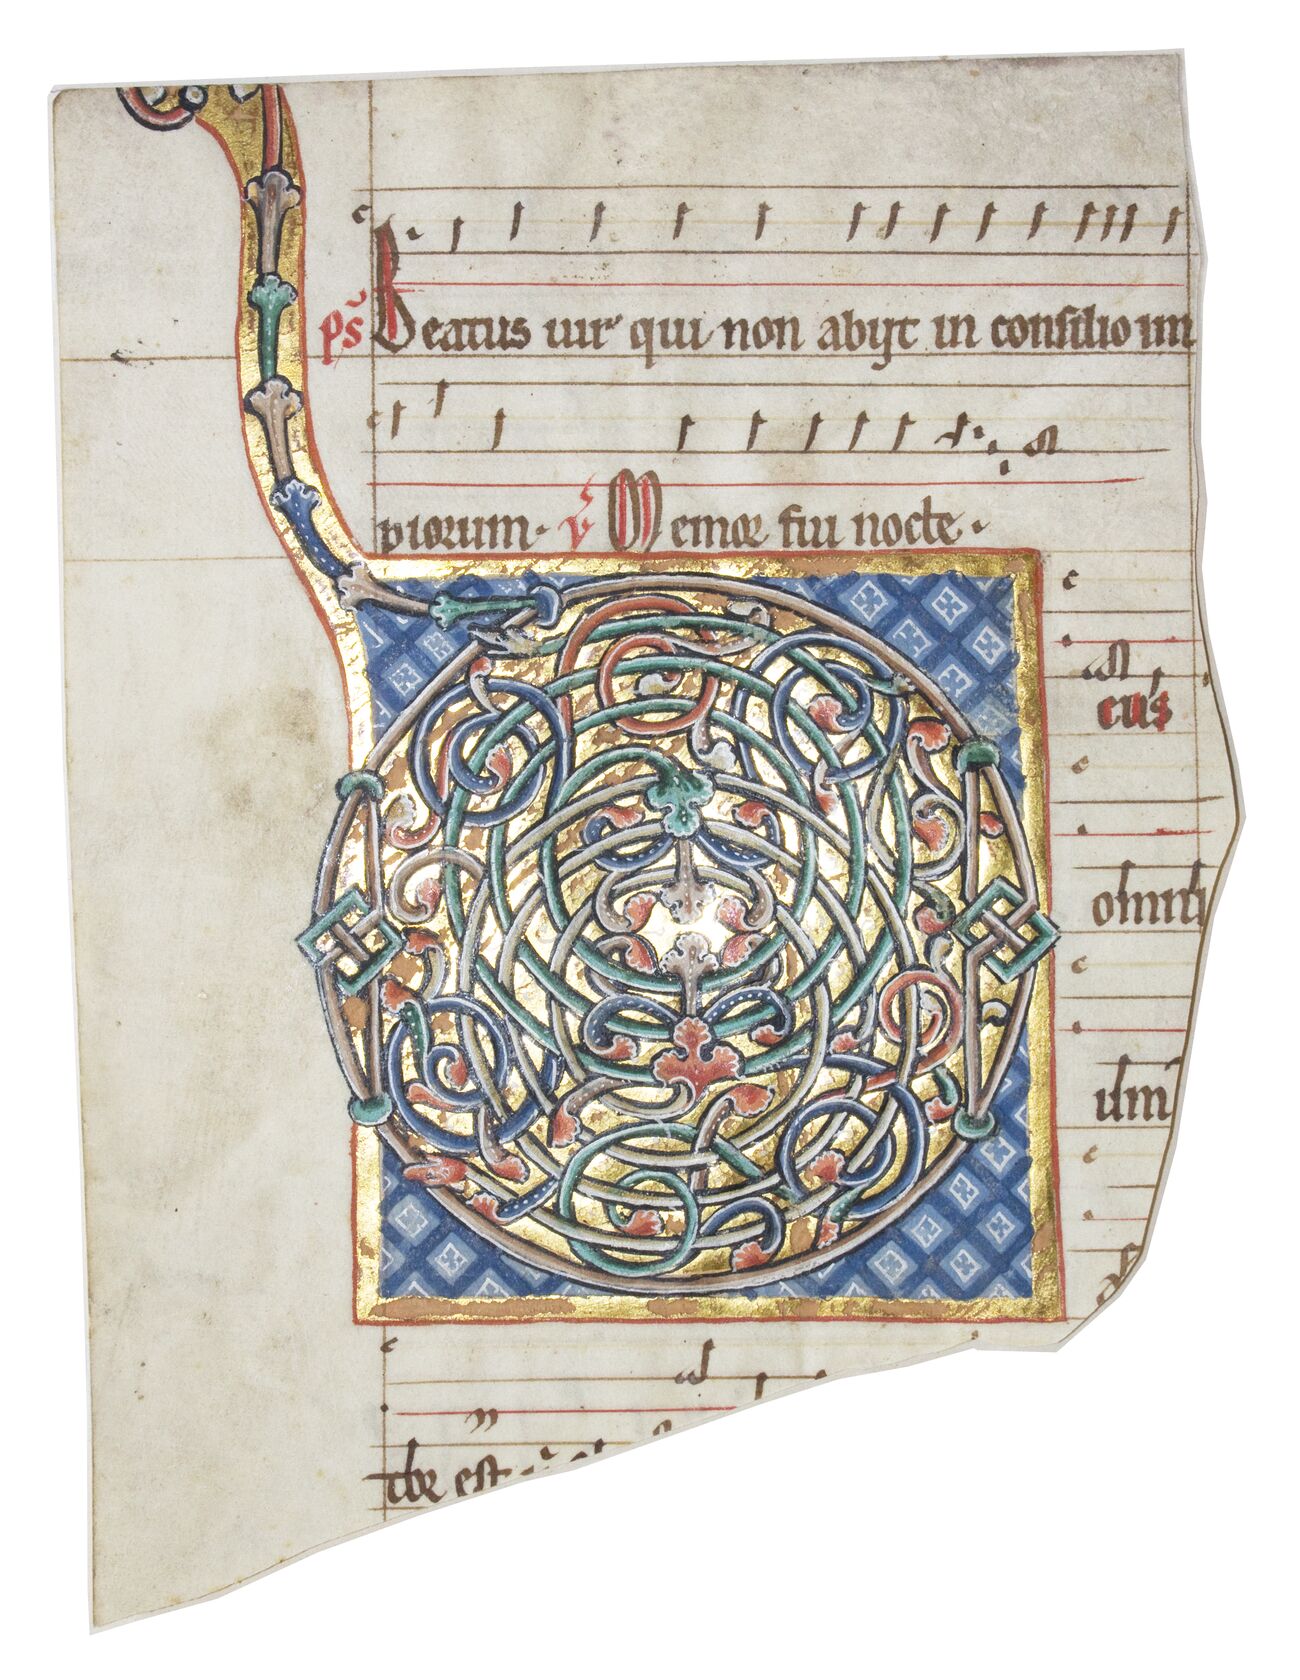 pš Beatus uir qui non abijt in consilio im
piorum. v̄ Memor fui nocte.
cus
omni
tbr est